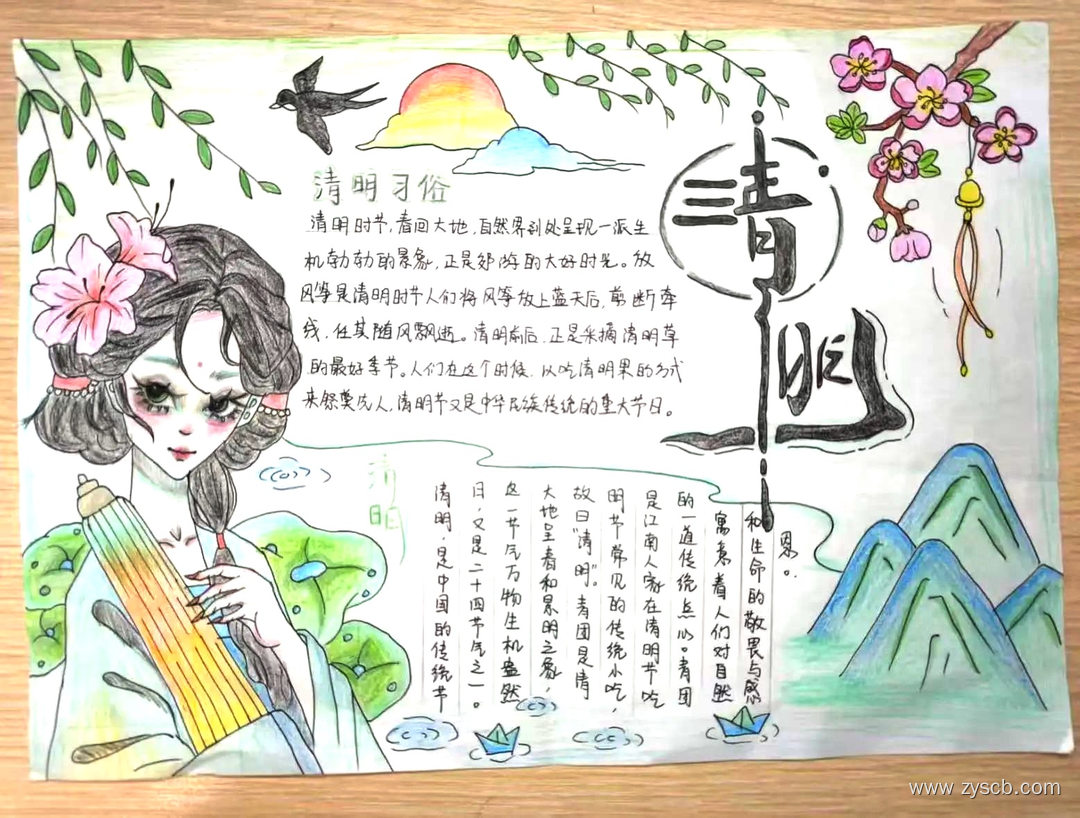 清明
清明习俗
清明时节，春回大地，自然界到处呈现一派生
机勃勃的景象，正是郊游的大好时光。放
风筝是清明时节人们将风筝放上蓝天后，剪断牵
线，任其随风飘逝。清明前后，正是采摘清明草
的最好季节。人们在这个时候，以吃清明果的方式
来祭奠先人，清明节又是中华民族传统的重大节日。
清明
清明，是中国的传统节
日，又是二十四节气之一。
这一节气万物生机盎然
大地呈春和景明之象，
故曰“清明”。青团是清
明节常见的传统小吃，
是江南人家在清明节吃
的一道传统点心。青团
寓意着人们对自然
和生命的敬畏与感
恩。
www.zyscb.com